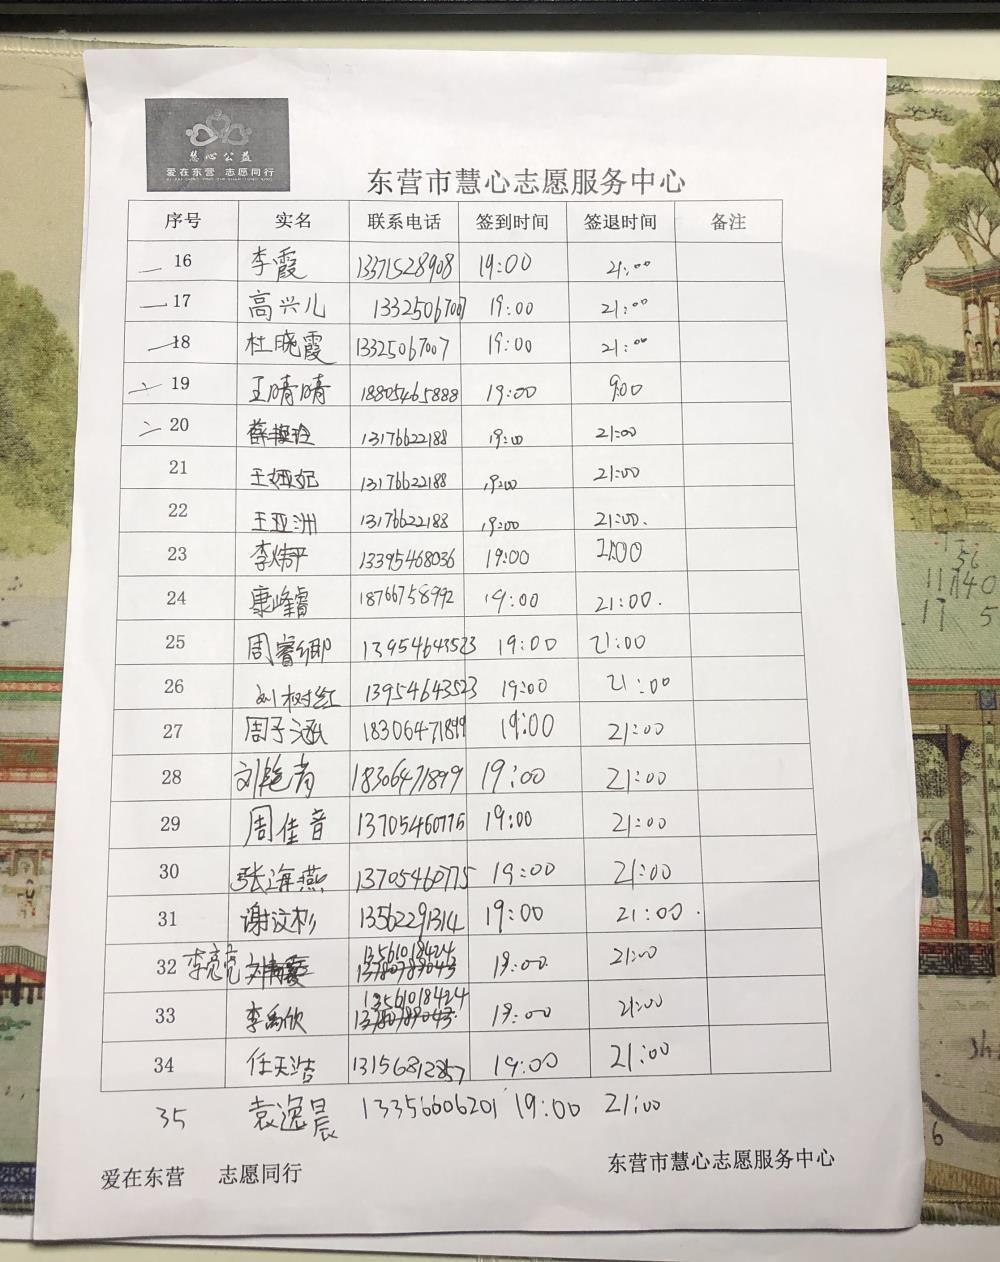 慧心公益
爱在东营 志愿同行
东营市慧心志愿服务中心
序号 实名 联系电话 签到时间 签退时间 备注
16 李霞 13371528908 19:00 21:00
17 高兴儿 13325067007 19:00 21:00
18 杜晓霞 13325067007 19:00 21:00
19 王晴晴 18805465888 19:00 9:00
20 13176622188 19:00 21:00
21 王娅妃 13176622188 19:00 21:00
22 王亚洲 13176622188 19:00 21:00.
23 李炜平 13395468036 19:00 21:00
24 康峰睿 18766758992 19:00 21:00.
25 周睿卿 13954643523 19:00 21:00
26 刘树红 13954643523 19:00 21:00
27 周子涵 18306471899 19:00 21:00
28 18306471899 19:00 21:00
29 周佳音 13705460775 19:00 21:00
30 张海燕 13705460775 19:00 21:00
31 谢汶杉 13562291314 19:00 21:00.
32 李亮亮 13561018424 19:00 21:00
33 李禹欣 13561018424 19:00 21:00
34 任天浩 13156812857 19:00 21:00
35 袁逸晨 13356606201 19:00 21:00
爱在东营 志愿同行 东营市慧心志愿服务中心